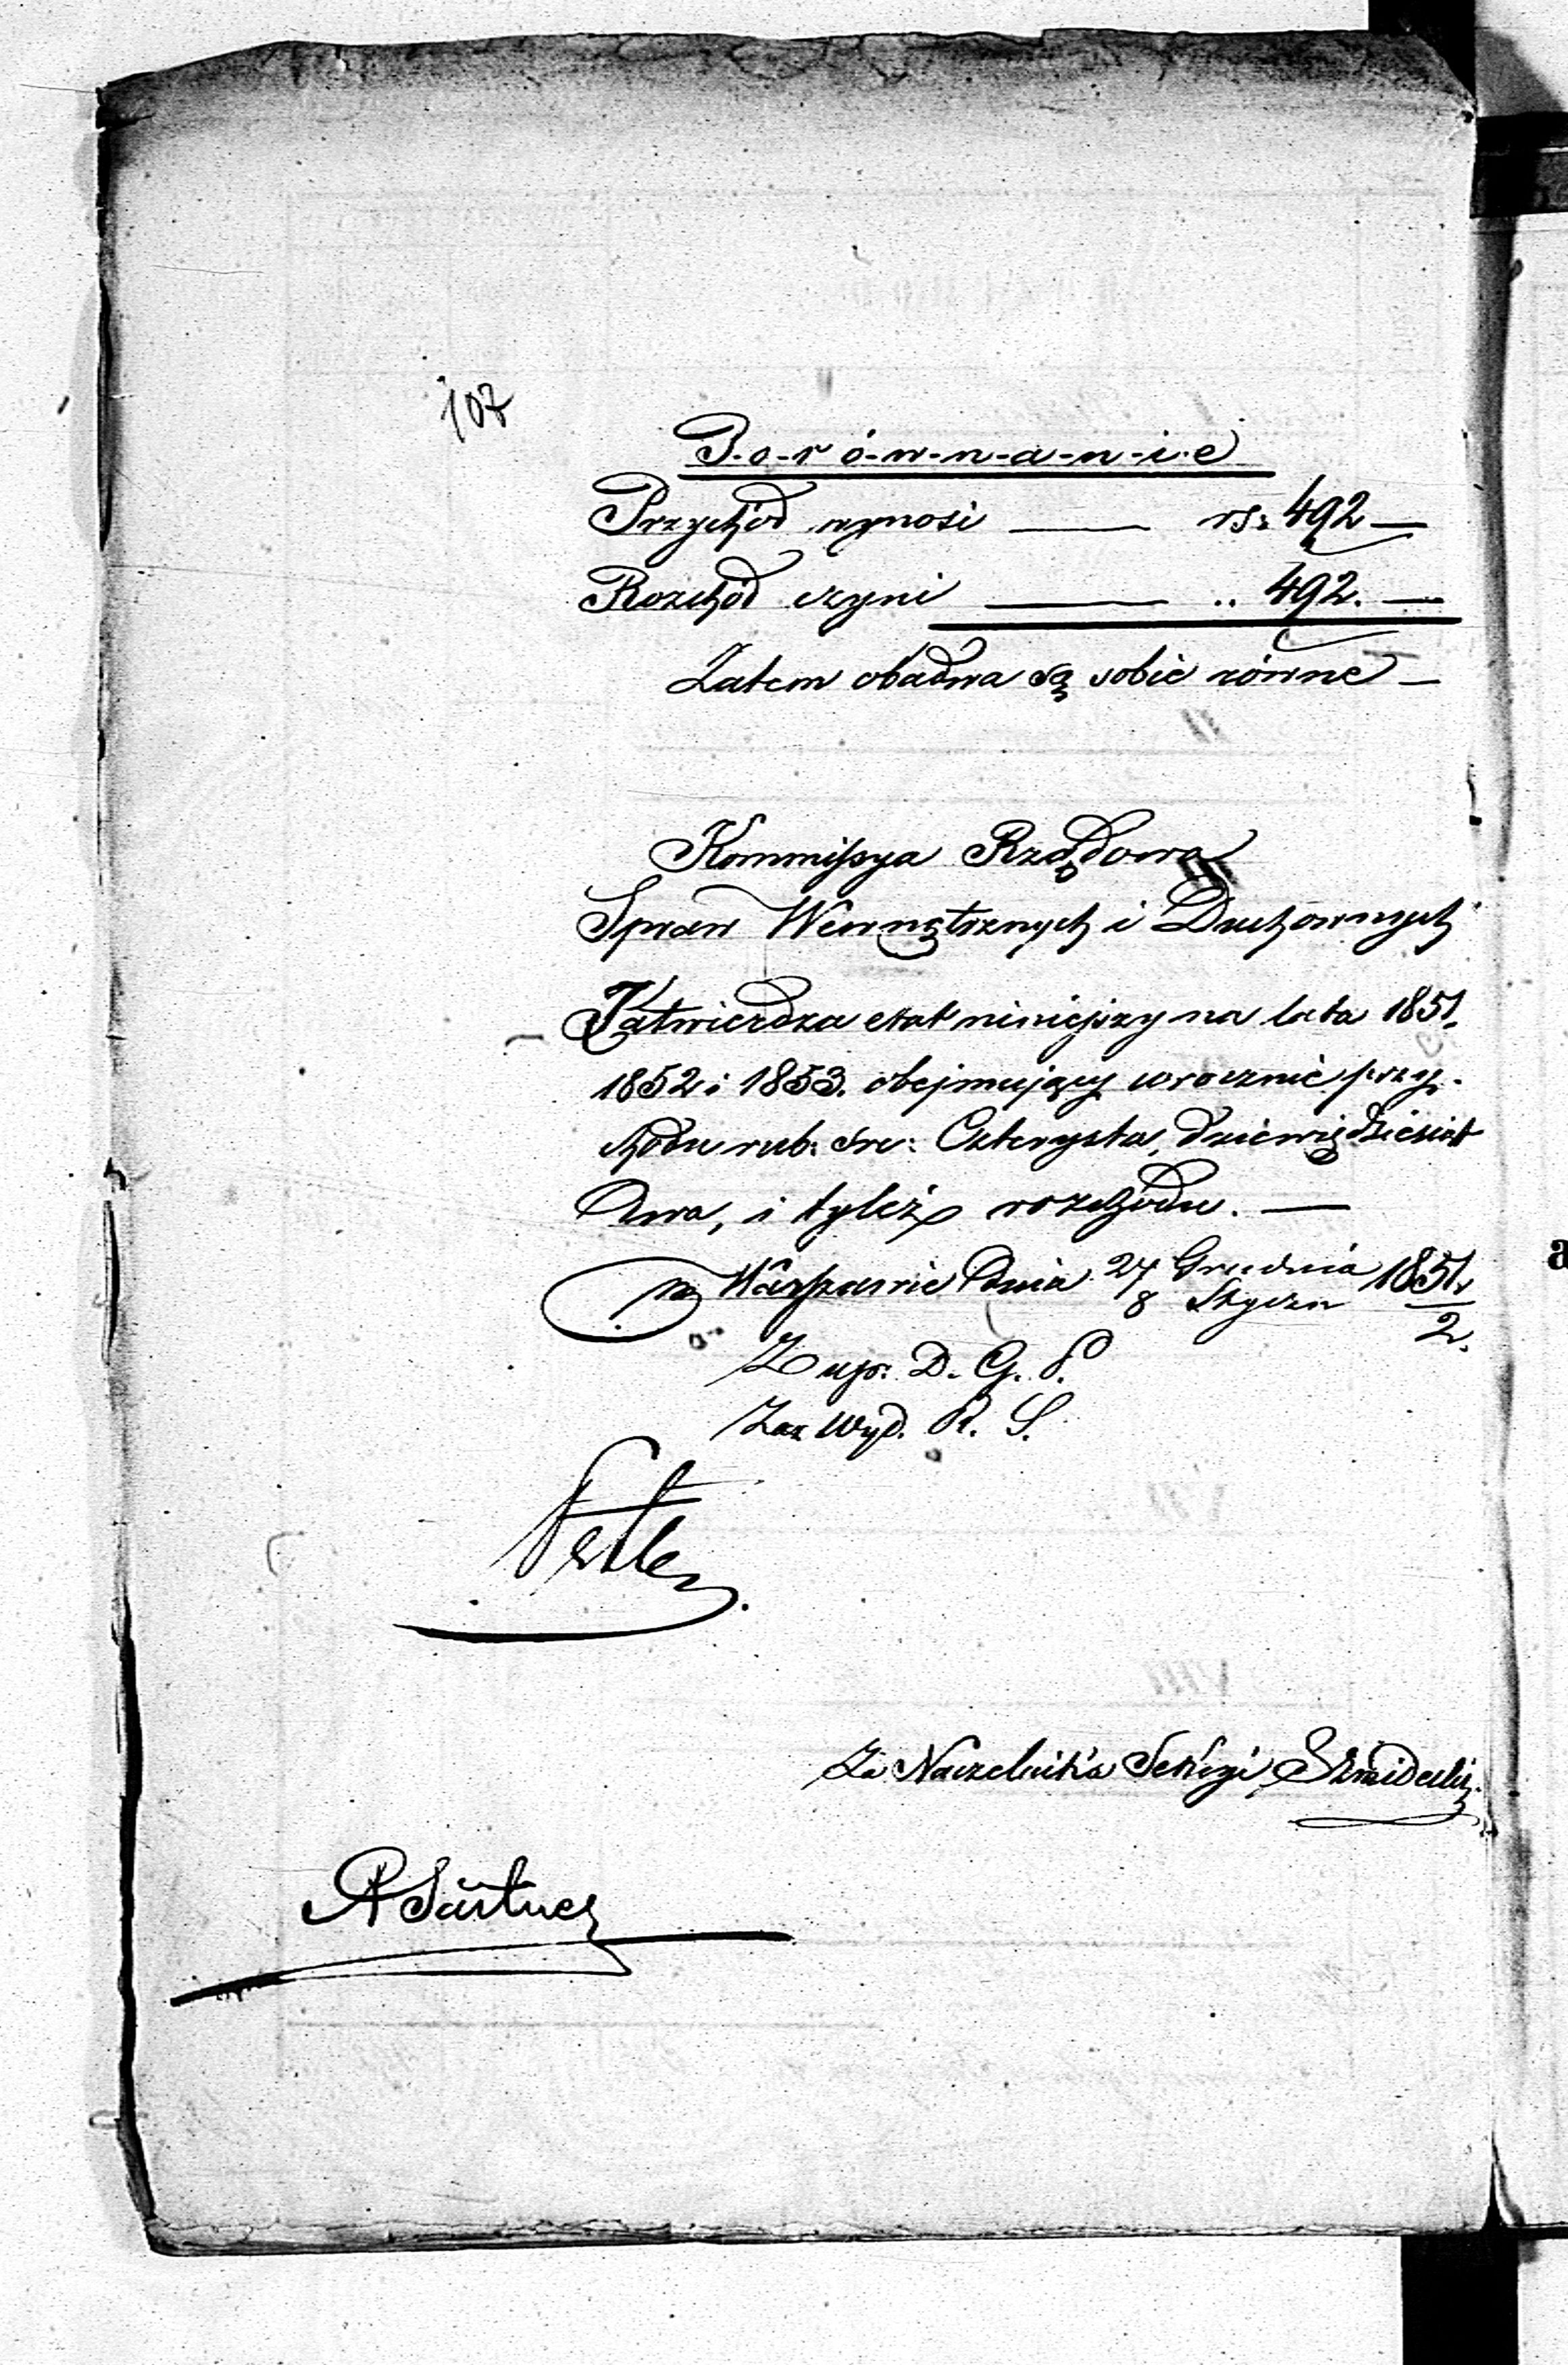 107
P-o-r-ó-w-n-a-n-i-e
Przychód wynosi — rs: 492 —
Rozchód czyni — .. 492. —
Zatem obadwa są sobie równe —
Kommissya Rządowa
Spraw Wewnętrznych i Duchownych
Zatwierdza etat niniejszy na lata 1851.
1852 i 1853. obejmujący wrocznie przy-
chodu rub: sre: Czterysta, dziewięćdziesiąt
dwa, i tyleż rozchodu. —
w Warszawie dnia 27 Grudnia / 8 Styczn 1851/2.
Z up. D. G. P.
Zaz Wyd. R. S.
Za Naczelnika Sekcyi